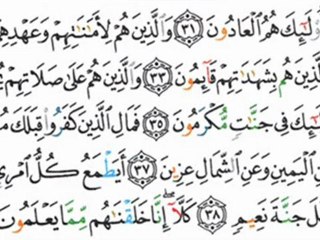 وْلَٰٓئِكَ هُمُ ٱلْعَادُونَ ٣١ وَٱلَّذِينَ هُمْ لِأَمَٰنَٰتِهِمْ وَعَهْدِهِمْ
ٱلَّذِينَ هُم بِشَهَٰدَٰتِهِمْ قَآئِمُونَ ٣٣ وَٱلَّذِينَ هُمْ عَلَىٰ صَلَاتِهِمْ
ئِكَ فِى جَنَّٰتٍ مُّكْرَمُونَ ٣٥ فَمَالِ ٱلَّذِينَ كَفَرُوا۟ قِبَلَكَ
ٱلْيَمِينِ وَعَنِ ٱلشِّمَالِ عِزِينَ ٣٧ أَيَطْمَعُ كُلُّ ٱمْرِئٍ
جَنَّةَ نَعِيمٍ ٣٨ كَلَّآ ۖ إِنَّا خَلَقْنَٰهُم مِّمَّا يَعْلَمُونَ